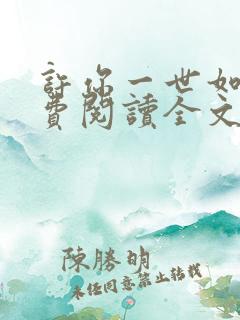 許你一世如
費閱讀全文
陳勝明
未經同意禁止轉載